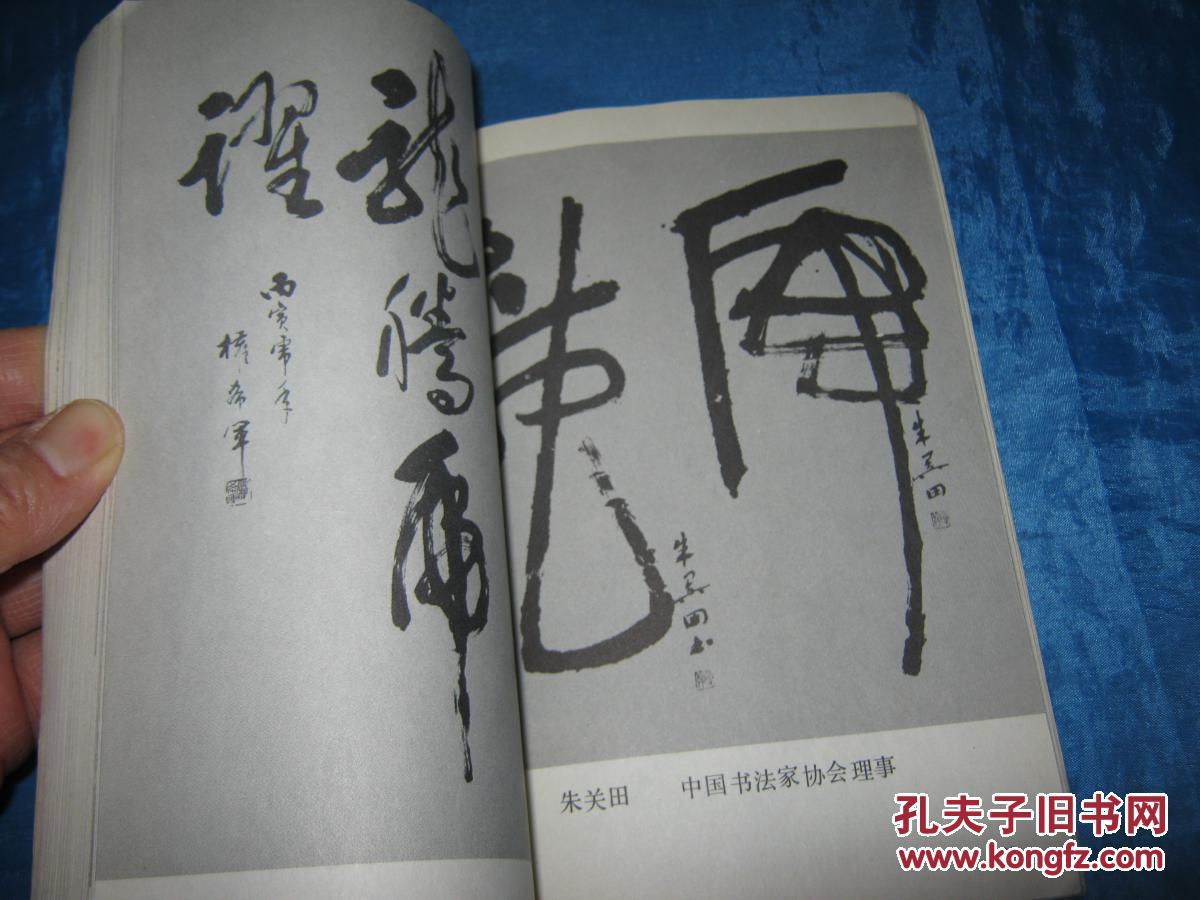 龍騰虎
躍
丙寅虎年
權希軍
虎
朱關田
朱關田书
朱关田 中国书法家协会理事
孔夫子旧书网
www.kongfz.com